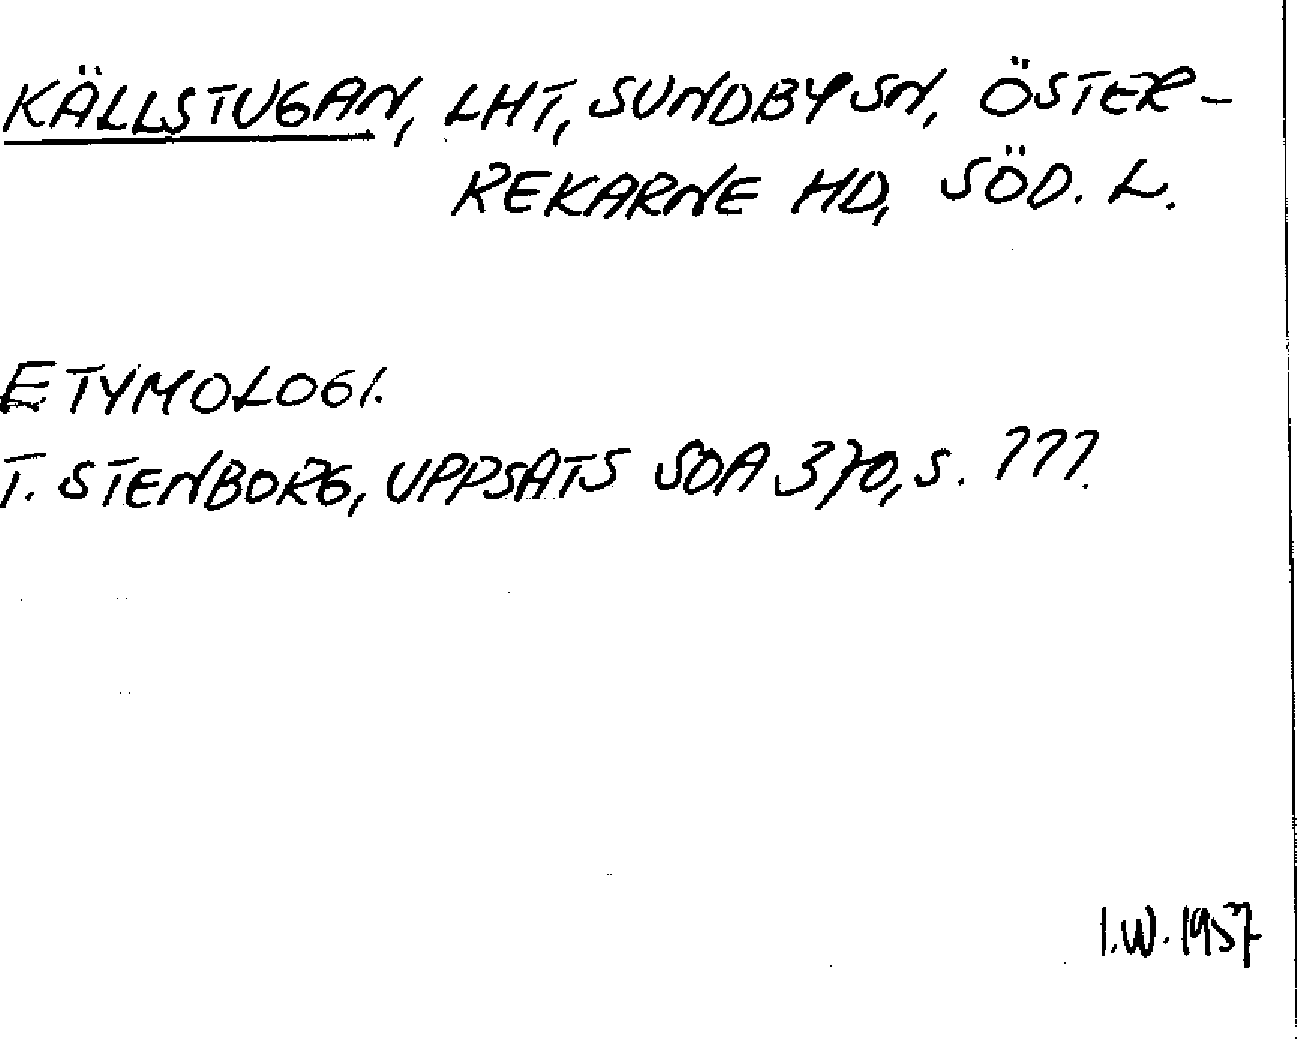 KÄLLSTUGAN, LHT, SUNDBY SN, ÖSTER-
REKARNE HD, SÖD. L.
ETYMOLOGI.
T. STENBORG, UPPSATS SOA 370, S.
I.W. 1957